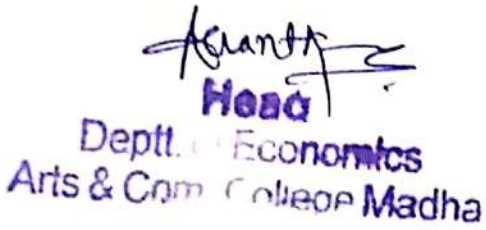 Head
Deptt. Economics
Arts & Com College Madha